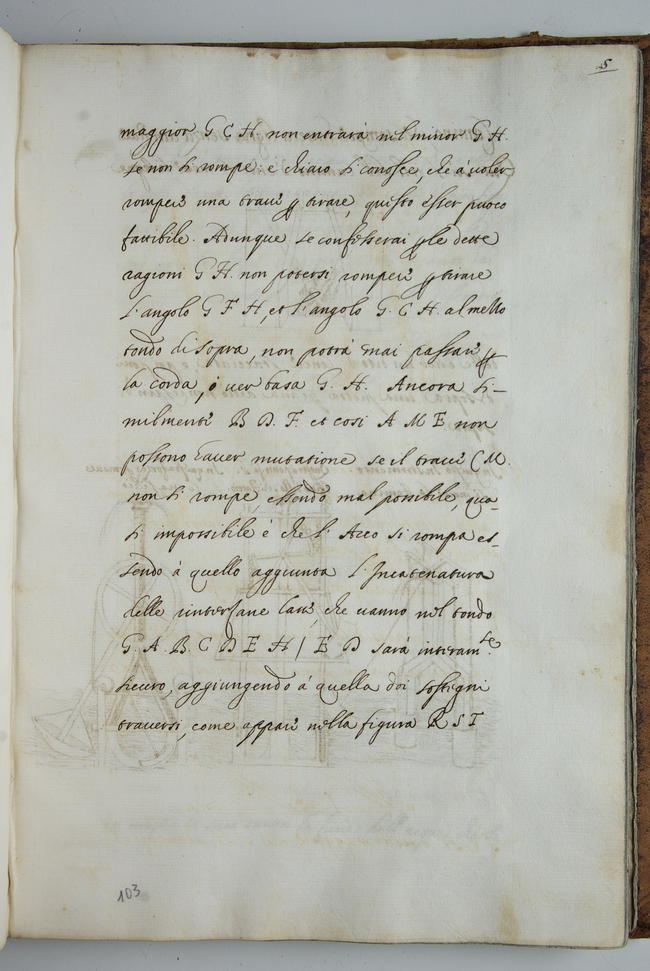 5
maggior G C H. non entrarà nel minor G H.
se non si rompe: e chiaro si conosce, che à voler
romper una trave p tirare, questo esser puoco
fattibile. Adunque se confesserai p le dette
ragioni G H. non potersi romper p tirare
l'angolo G F H, et l'angolo G. C H. al mezzo
tondo di sopra, non potrà mai passar p
la corda, ò ver basa G. H. Ancora si-
milmente B D. F. et cosi A M E non
possono haver mutatione se il trave C M.
non si rompe, essendo mal possibile, qua-
si impossibile è che l'Arco si rompa es-
sendo à quello aggiunta l'Incatenatura
delle interсane, che vanno nel tondo
G. A. B. C D E H / E D sarà interam.te
sicuro, aggiungendo à quella doi sostegni
traversi, come appare nella figura R S T
103